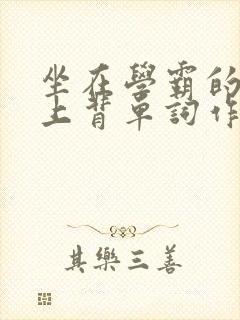 坐在學霸的
上背單詞作
其樂三善